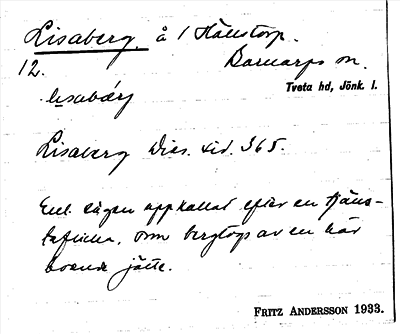 Lisaberg. å 1 Hällstorp.
12. Barnarps sn.
Tveta hd, Jönk. l.
lisabärj
Lisaberg Dies. sid. 365.
Enl. sägen uppkallat efter en tjäns-
teflicka, som bergtogs av en här
boende jätte.
FRITZ ANDERSSON 1933.